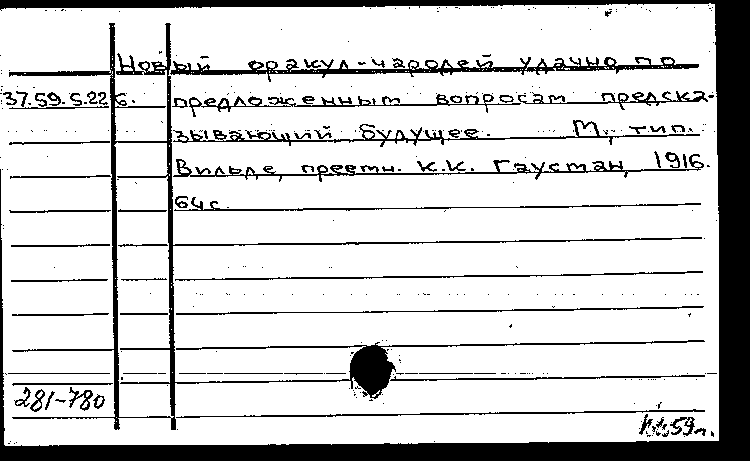 Новый оракул-чародей удачно по
37.59.5.22 б. предложенным вопросам предска-
зывающий будущее. М., тип.
Вильде, преемн. К.К. Гаустан, 1916.
64 с.
281-780
59 г.